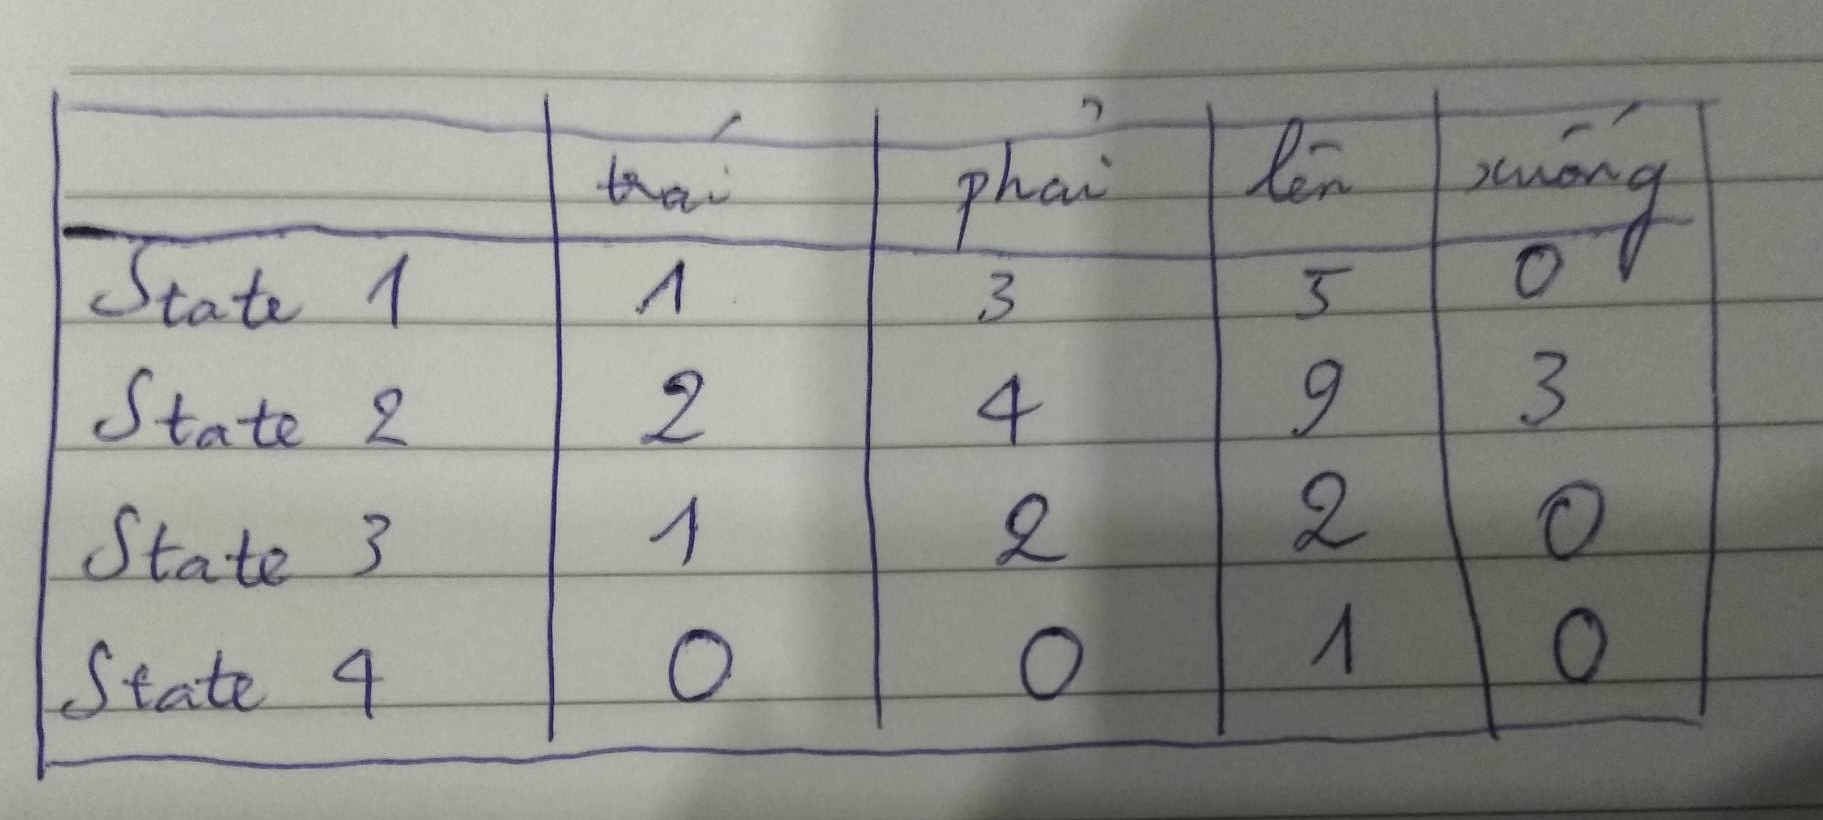 trái phải lên xuống
State 1 1 3 5 0
State 2 2 4 9 3
State 3 1 2 2 0
State 4 0 0 1 0